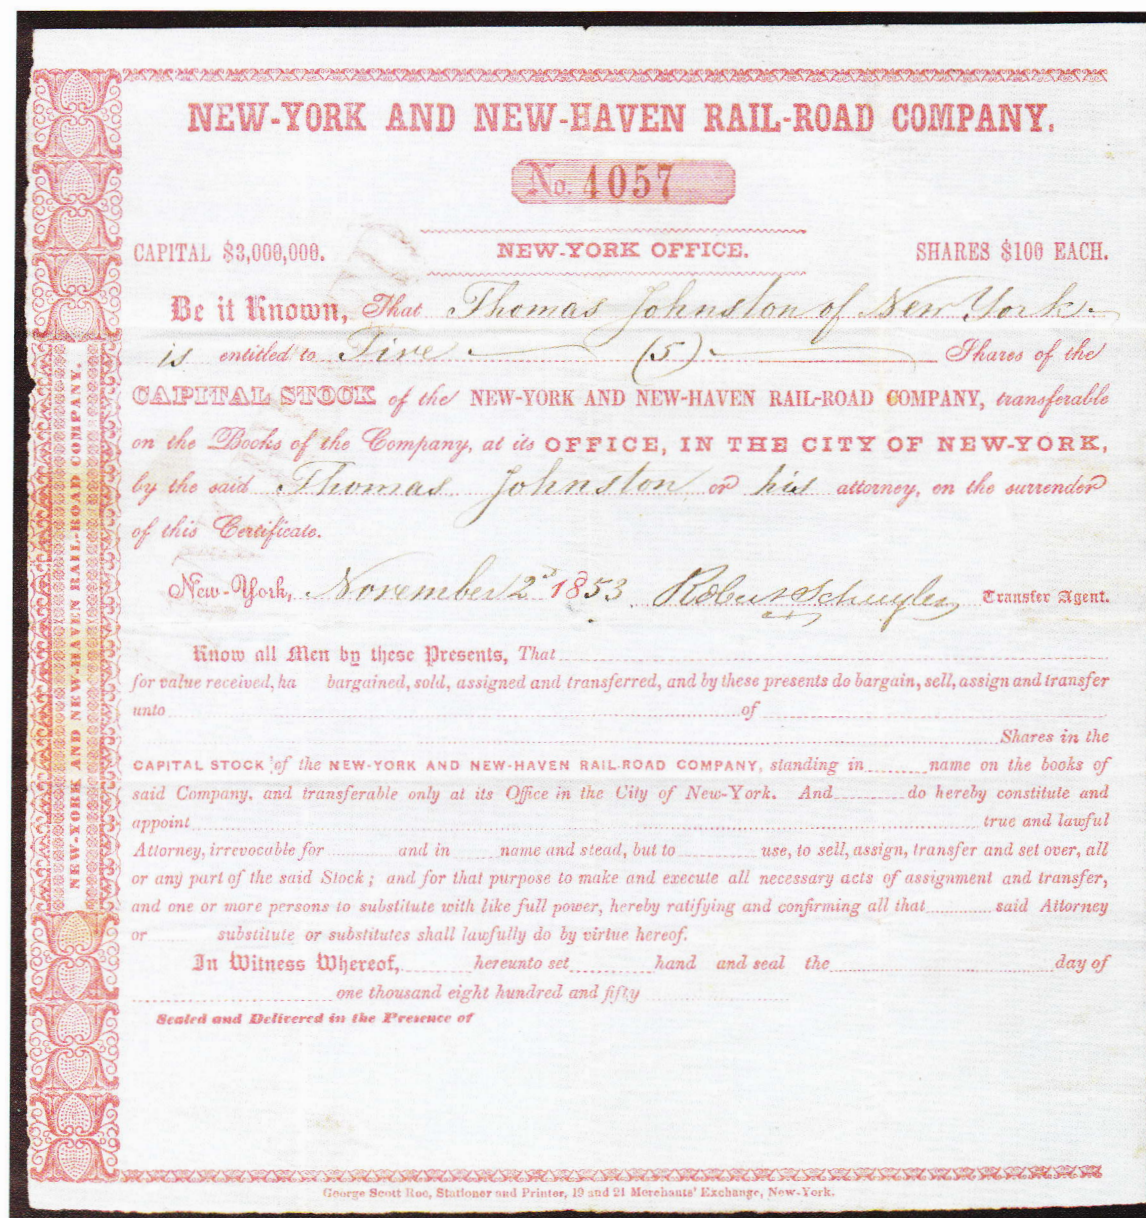 NEW-YORK AND NEW-HAVEN RAIL-ROAD COMPANY.
No. 4057
CAPITAL $3,000,000. NEW-YORK OFFICE. SHARES $100 EACH.
Be it Known, That Thomas Johnston of New York
is entitled to Five (5) Shares of the
CAPITAL STOCK of the NEW-YORK AND NEW-HAVEN RAIL-ROAD COMPANY, transferable
on the Books of the Company, at its OFFICE, IN THE CITY OF NEW-YORK,
by the said Thomas Johnston or his attorney, on the surrender
of this Certificate.
New-York, November 2d 1853 Robert Schuyler Transfer Agent.
Know all Men by these Presents, That
for value received, ha bargained, sold, assigned and transferred, and by these presents do bargain, sell, assign and transfer
unto of
Shares in the
CAPITAL STOCK of the NEW-YORK AND NEW-HAVEN RAIL-ROAD COMPANY, standing in name on the books of
said Company, and transferable only at its Office in the City of New-York. And do hereby constitute and
appoint true and lawful
Attorney, irrevocable for and in name and stead, but to use, to sell, assign, transfer and set over, all
or any part of the said Stock; and for that purpose to make and execute all necessary acts of assignment and transfer,
and one or more persons to substitute with like full power, hereby ratifying and confirming all that said Attorney
or substitute or substitutes shall lawfully do by virtue hereof.
In Witness Whereof, hereunto set hand and seal the day of
one thousand eight hundred and fifty
Sealed and Delivered in the Presence of
George Scott Roe, Stationer and Printer, 19 and 21 Merchants' Exchange, New-York.
NEW-YORK AND NEW-HAVEN RAIL-ROAD COMPANY.